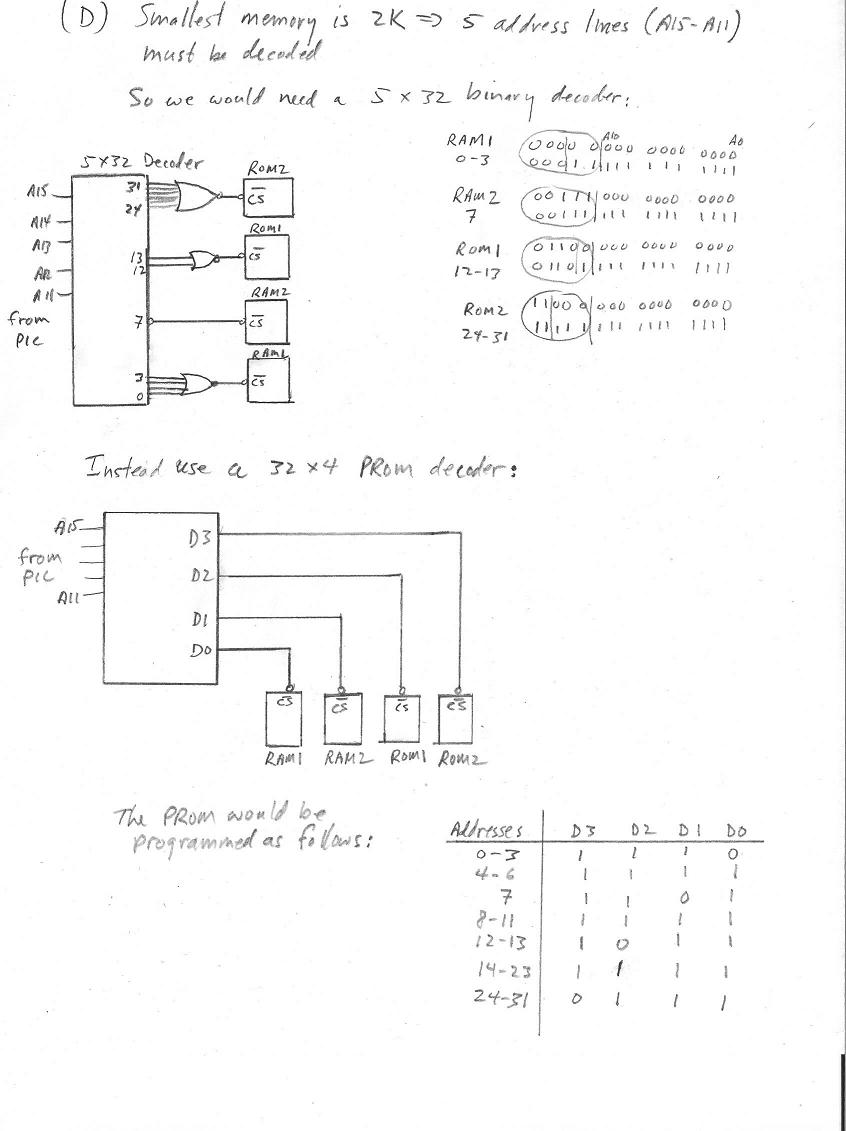 (D) Smallest memory is 2K => 5 address lines (A15-A11)
must be decoded
So we would need a 5 x 32 binary decoder:
RAM1 0000 0|000 0000 0000
A10 A0
0-3 0001 1|111 1111 1111
RAM2 00111|000 0000 0000
7 00111|111 1111 1111
ROM1 01100|000 0000 0000
12-13 01101|111 1111 1111
ROM2 11000|000 0000 0000
24-31 11111|111 1111 1111
5x32 Decoder
A15
A14
A13
A12
A11
from
PIC
31
24
13
12
7
3
0
ROM2
CS
ROM1
CS
RAM2
CS
RAM1
CS
Instead use a 32 x4 PROM decoder:
A15
from
PIC
A11
D3
D2
D1
D0
CS CS CS CS
RAM1 RAM2 ROM1 ROM2
The PROM would be
programmed as follows:
Addresses D3 D2 D1 D0
0-3 1 1 1 0
4-6 1 1 1 1
7 1 1 0 1
8-11 1 1 1 1
12-13 1 0 1 1
14-23 1 1 1 1
24-31 0 1 1 1